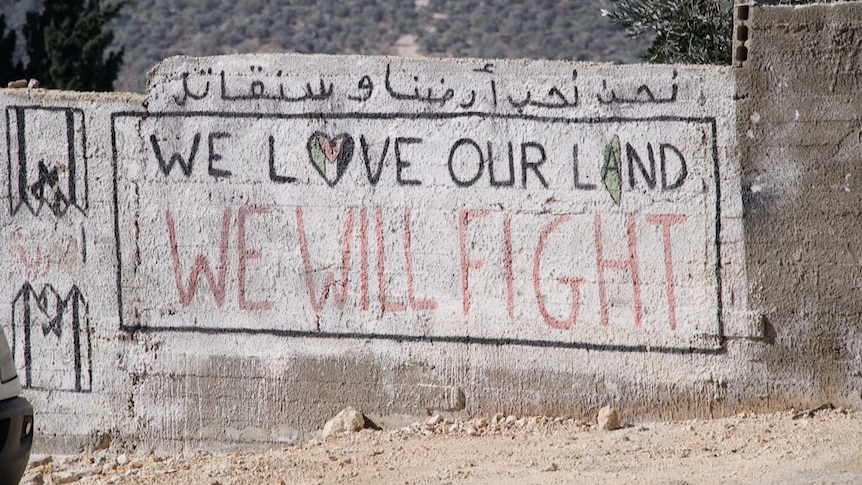 نحن نحب أرضنا و سنقاتل
WE LOVE OUR LAND
WE WILL FIGHT